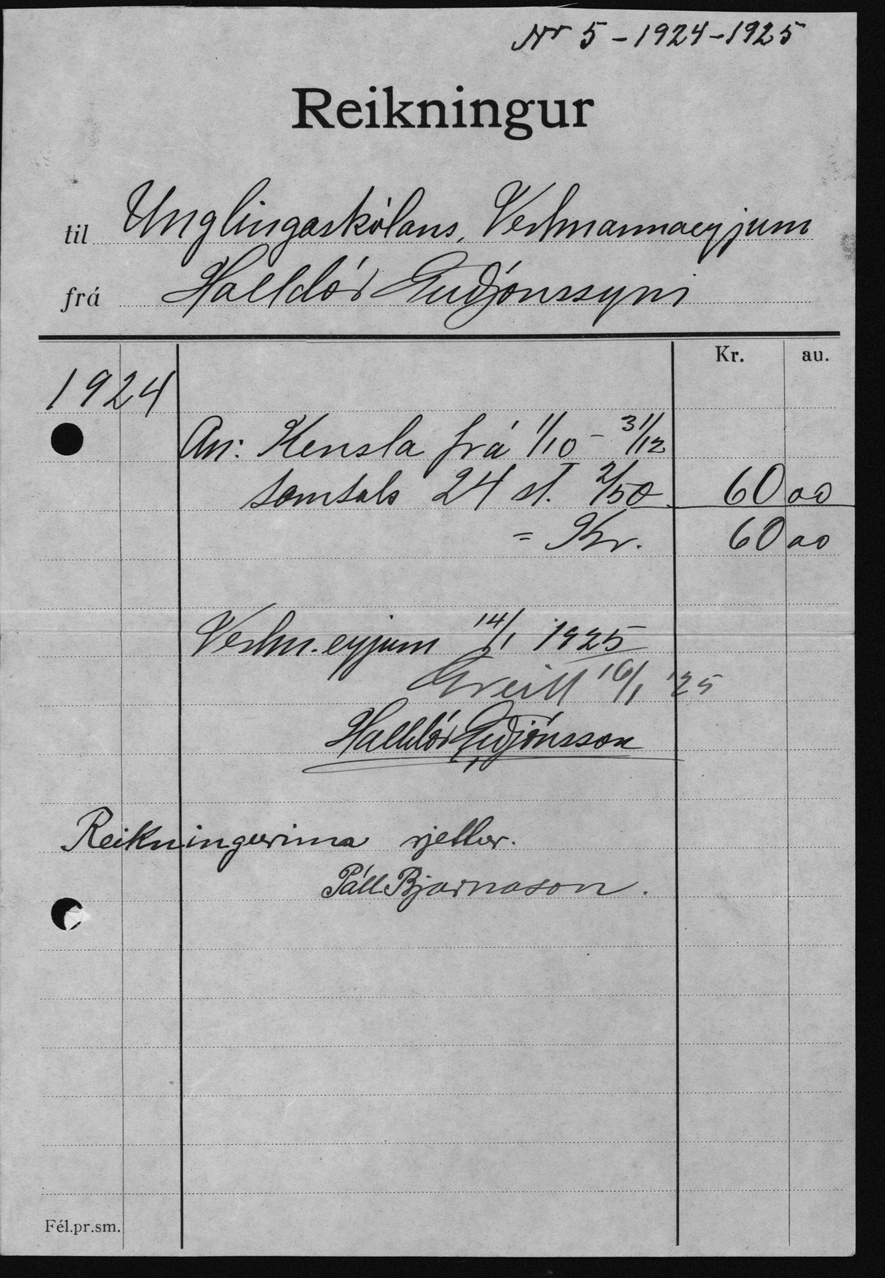 Nr 5 - 1924 - 1925
Reikningur
til Unglingaskólans, Vestmannaeyjum
frá Halldór Guðjónssyni
Kr. au.
1924
An: Kensla frá 1/10 - 31/12
samtals 24 st. 2/50 60 00
= Kr. 60 00
Vestm.eyjum 14/1 1925
Greitt 16/1 '25
Halldór Guðjónsson
Reikningurinn rjettur.
Páll Bjarnason.
Fél.pr.sm.